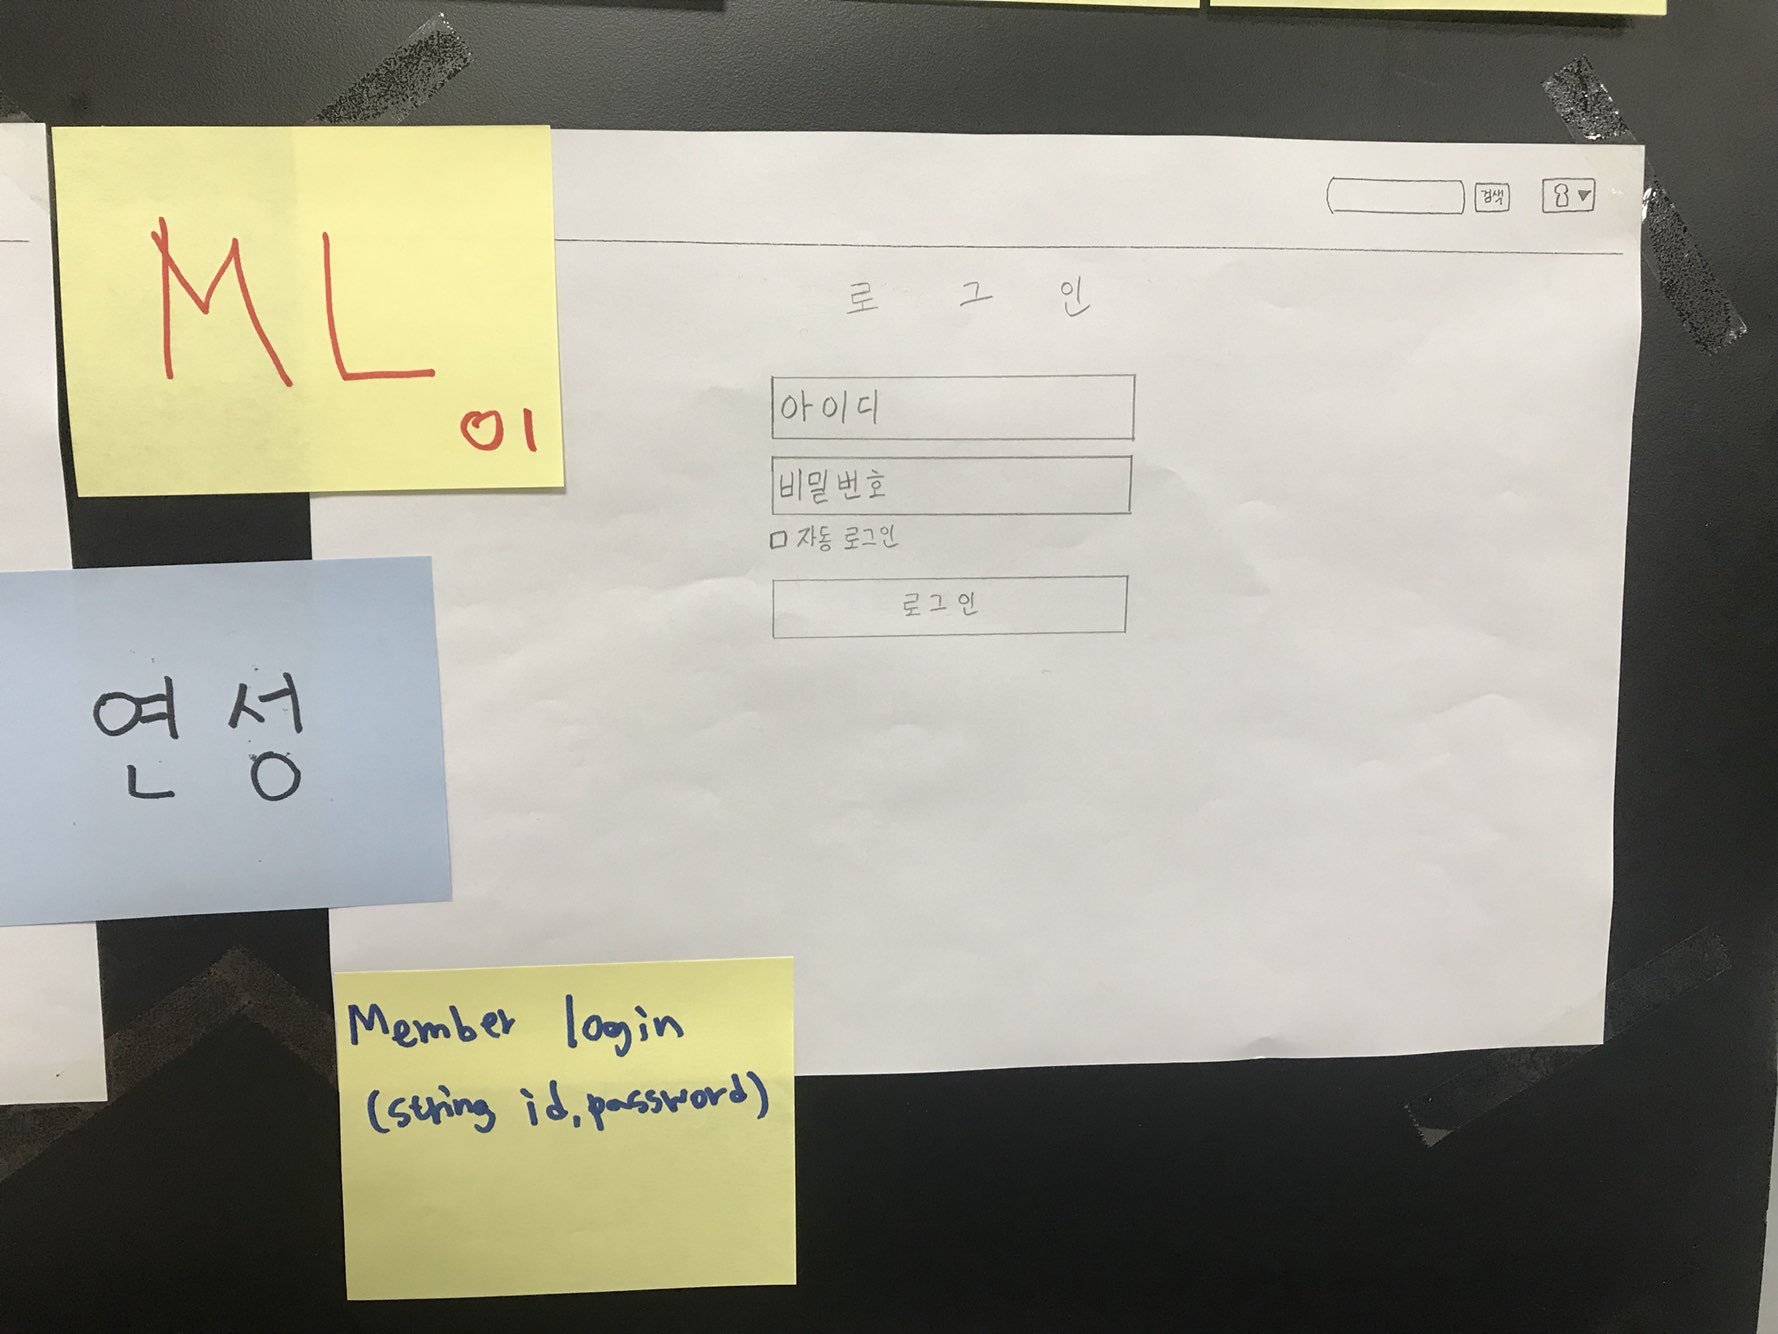 ML
01
검색
로 그 인
아이디
비밀번호
자동 로그인
로그인
연성
Member login
(string id, password)